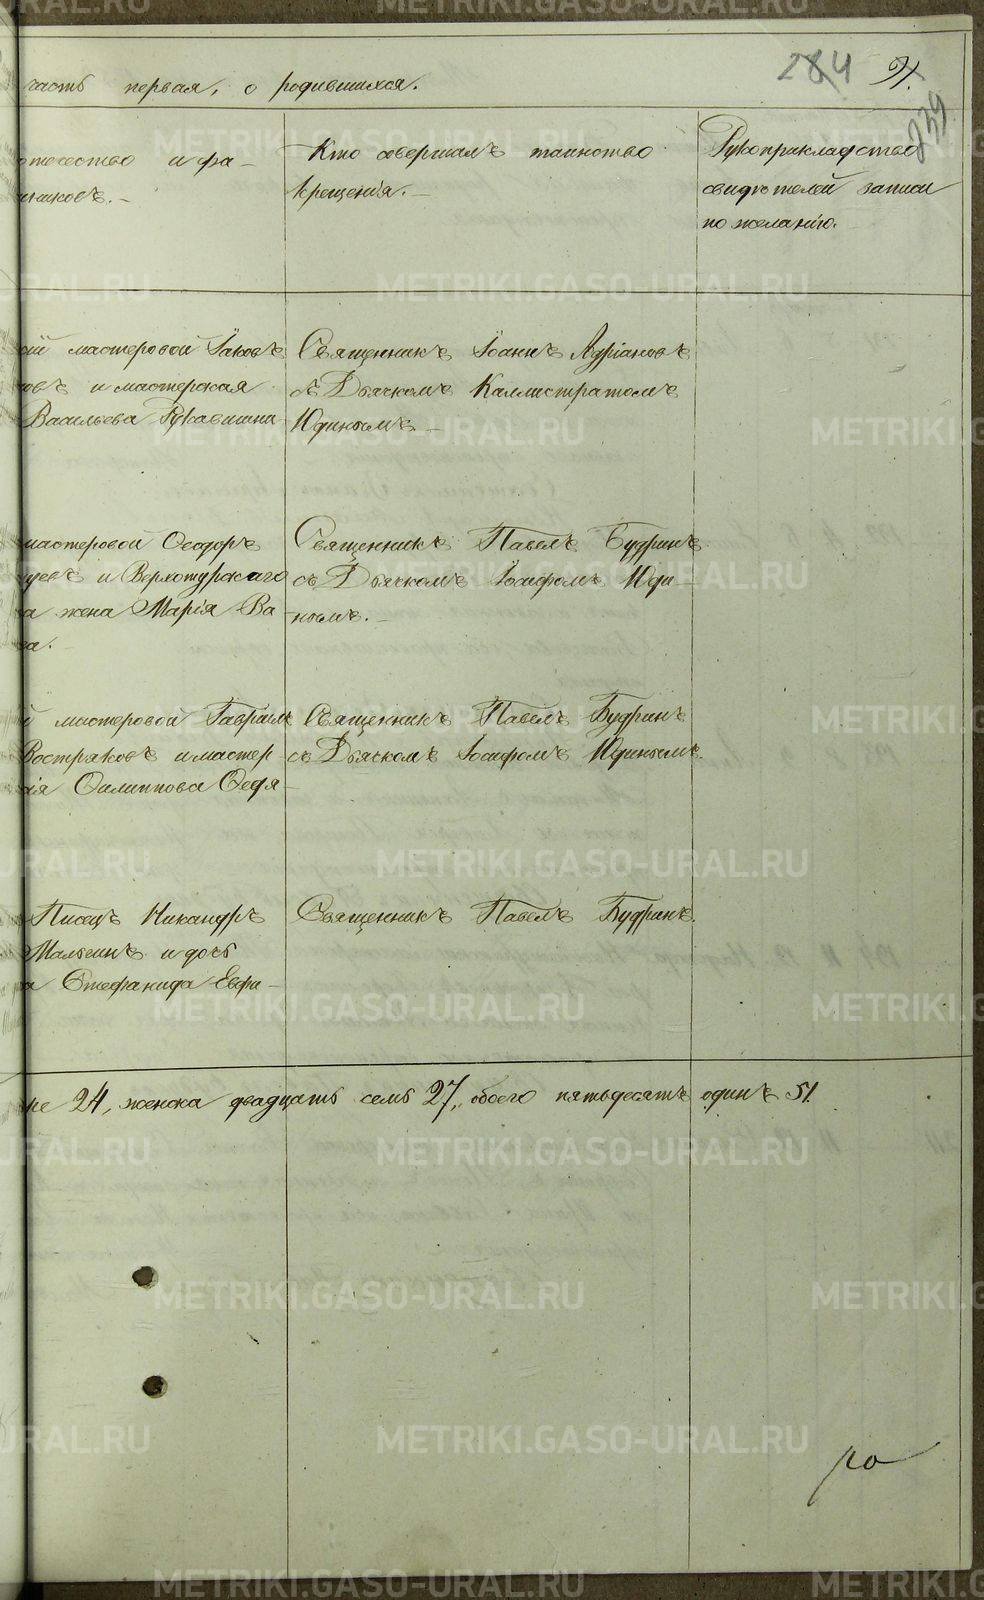 284 91.
239
часть первая, о родившихся.
отчество и фа-
Кто совершалъ таинство
крещенія.-
Рукоприкладство
свидѣтелей записи
по желанію.
мастеровой Іаковъ
овъ и мастерская
Васильева Рукавишни
Священникъ Іоаннъ Адріановъ
съ Дьячкомъ Каллистратомъ
Юдинымъ.-
мастеровой Ѳеодоръ
и Верхотурскаго
жена Марія Ва
ва.-
Священникъ Павелъ Будринъ
съ Дьячкомъ Іосифомъ Юди-
нымъ.-
й мастеровой Гавріилъ
Востряковъ и мастер
ая Филиппова Ѳедя-
Священникъ Павелъ Будринъ
съ Дьячкомъ Іосифомъ Юдинымъ.
Писецъ Никандръ
Мальгинъ и дочь
а Стефанида Евфи-
Священникъ Павелъ Будринъ.
24, женска двадцать семь 27, обоего пятьдесятъ одинъ 51.
по
METRIKI.GASO-URAL.RU